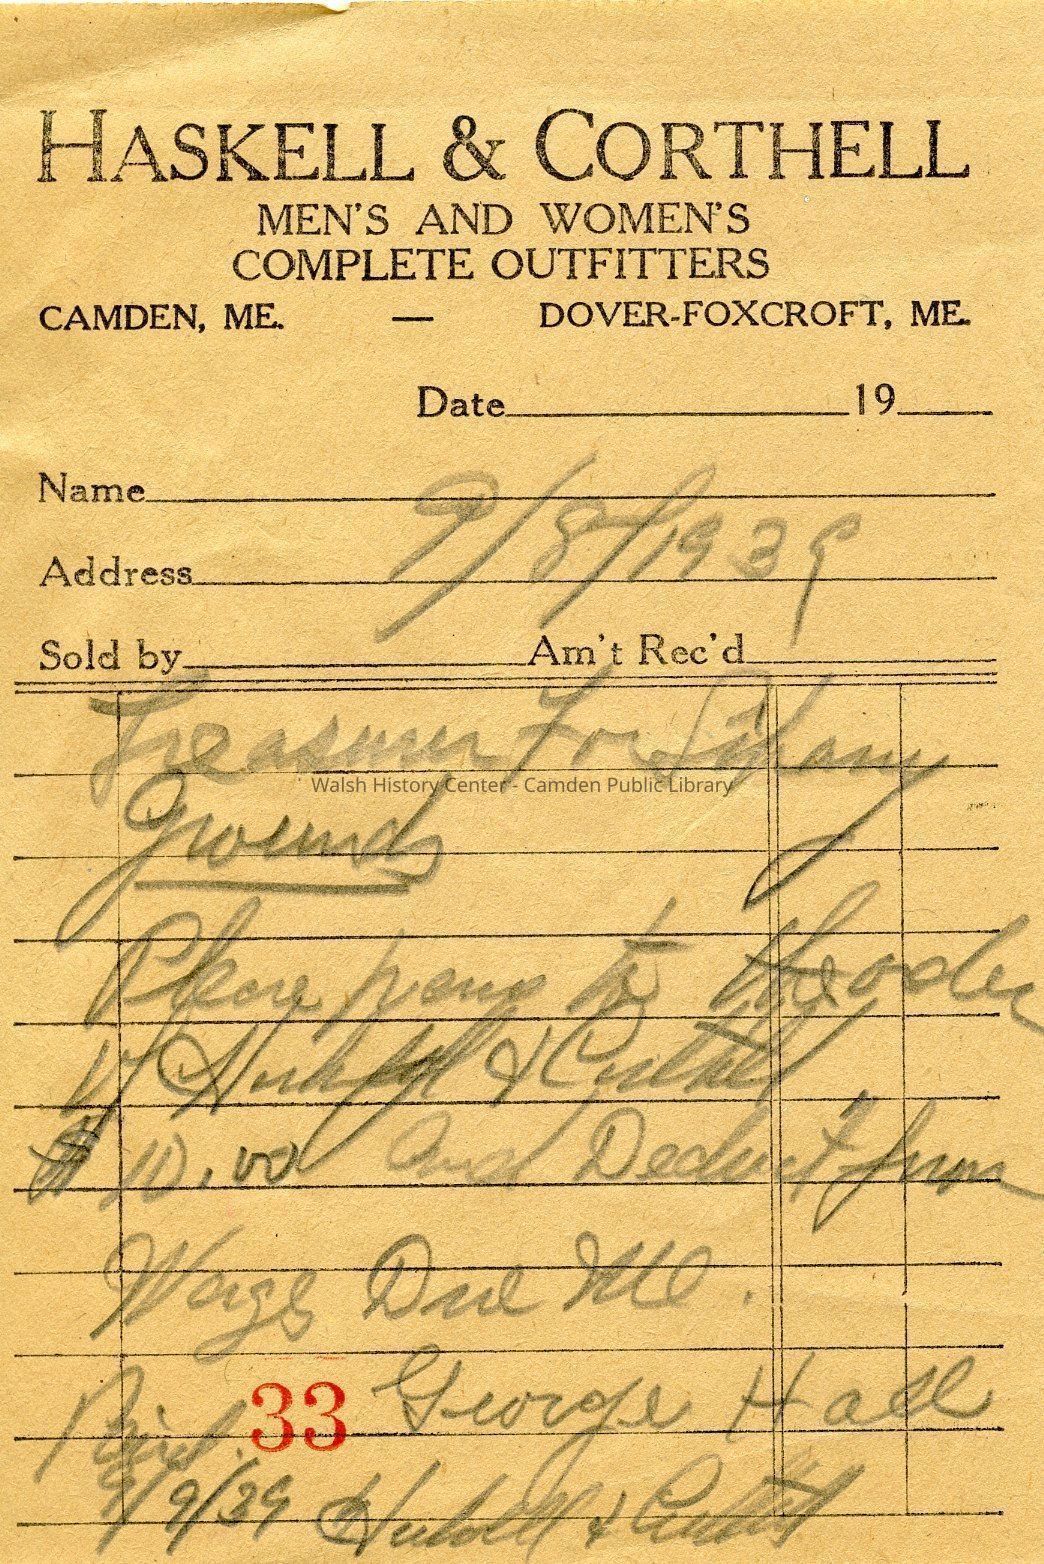 HASKELL & CORTHELL
MEN'S AND WOMEN'S
COMPLETE OUTFITTERS
CAMDEN, ME. — DOVER-FOXCROFT, ME.
Date 19
Name
Address
9/8/1939
Sold by Am't Rec'd
Treasurer For
Walsh History Center - Camden Public Library
Grounds
Please pay to the order
of Haskell & Corthell
$10.00 and Deduct from
Wages Due Me.
33 George Hall
9/9/39 Haskell & Corthell